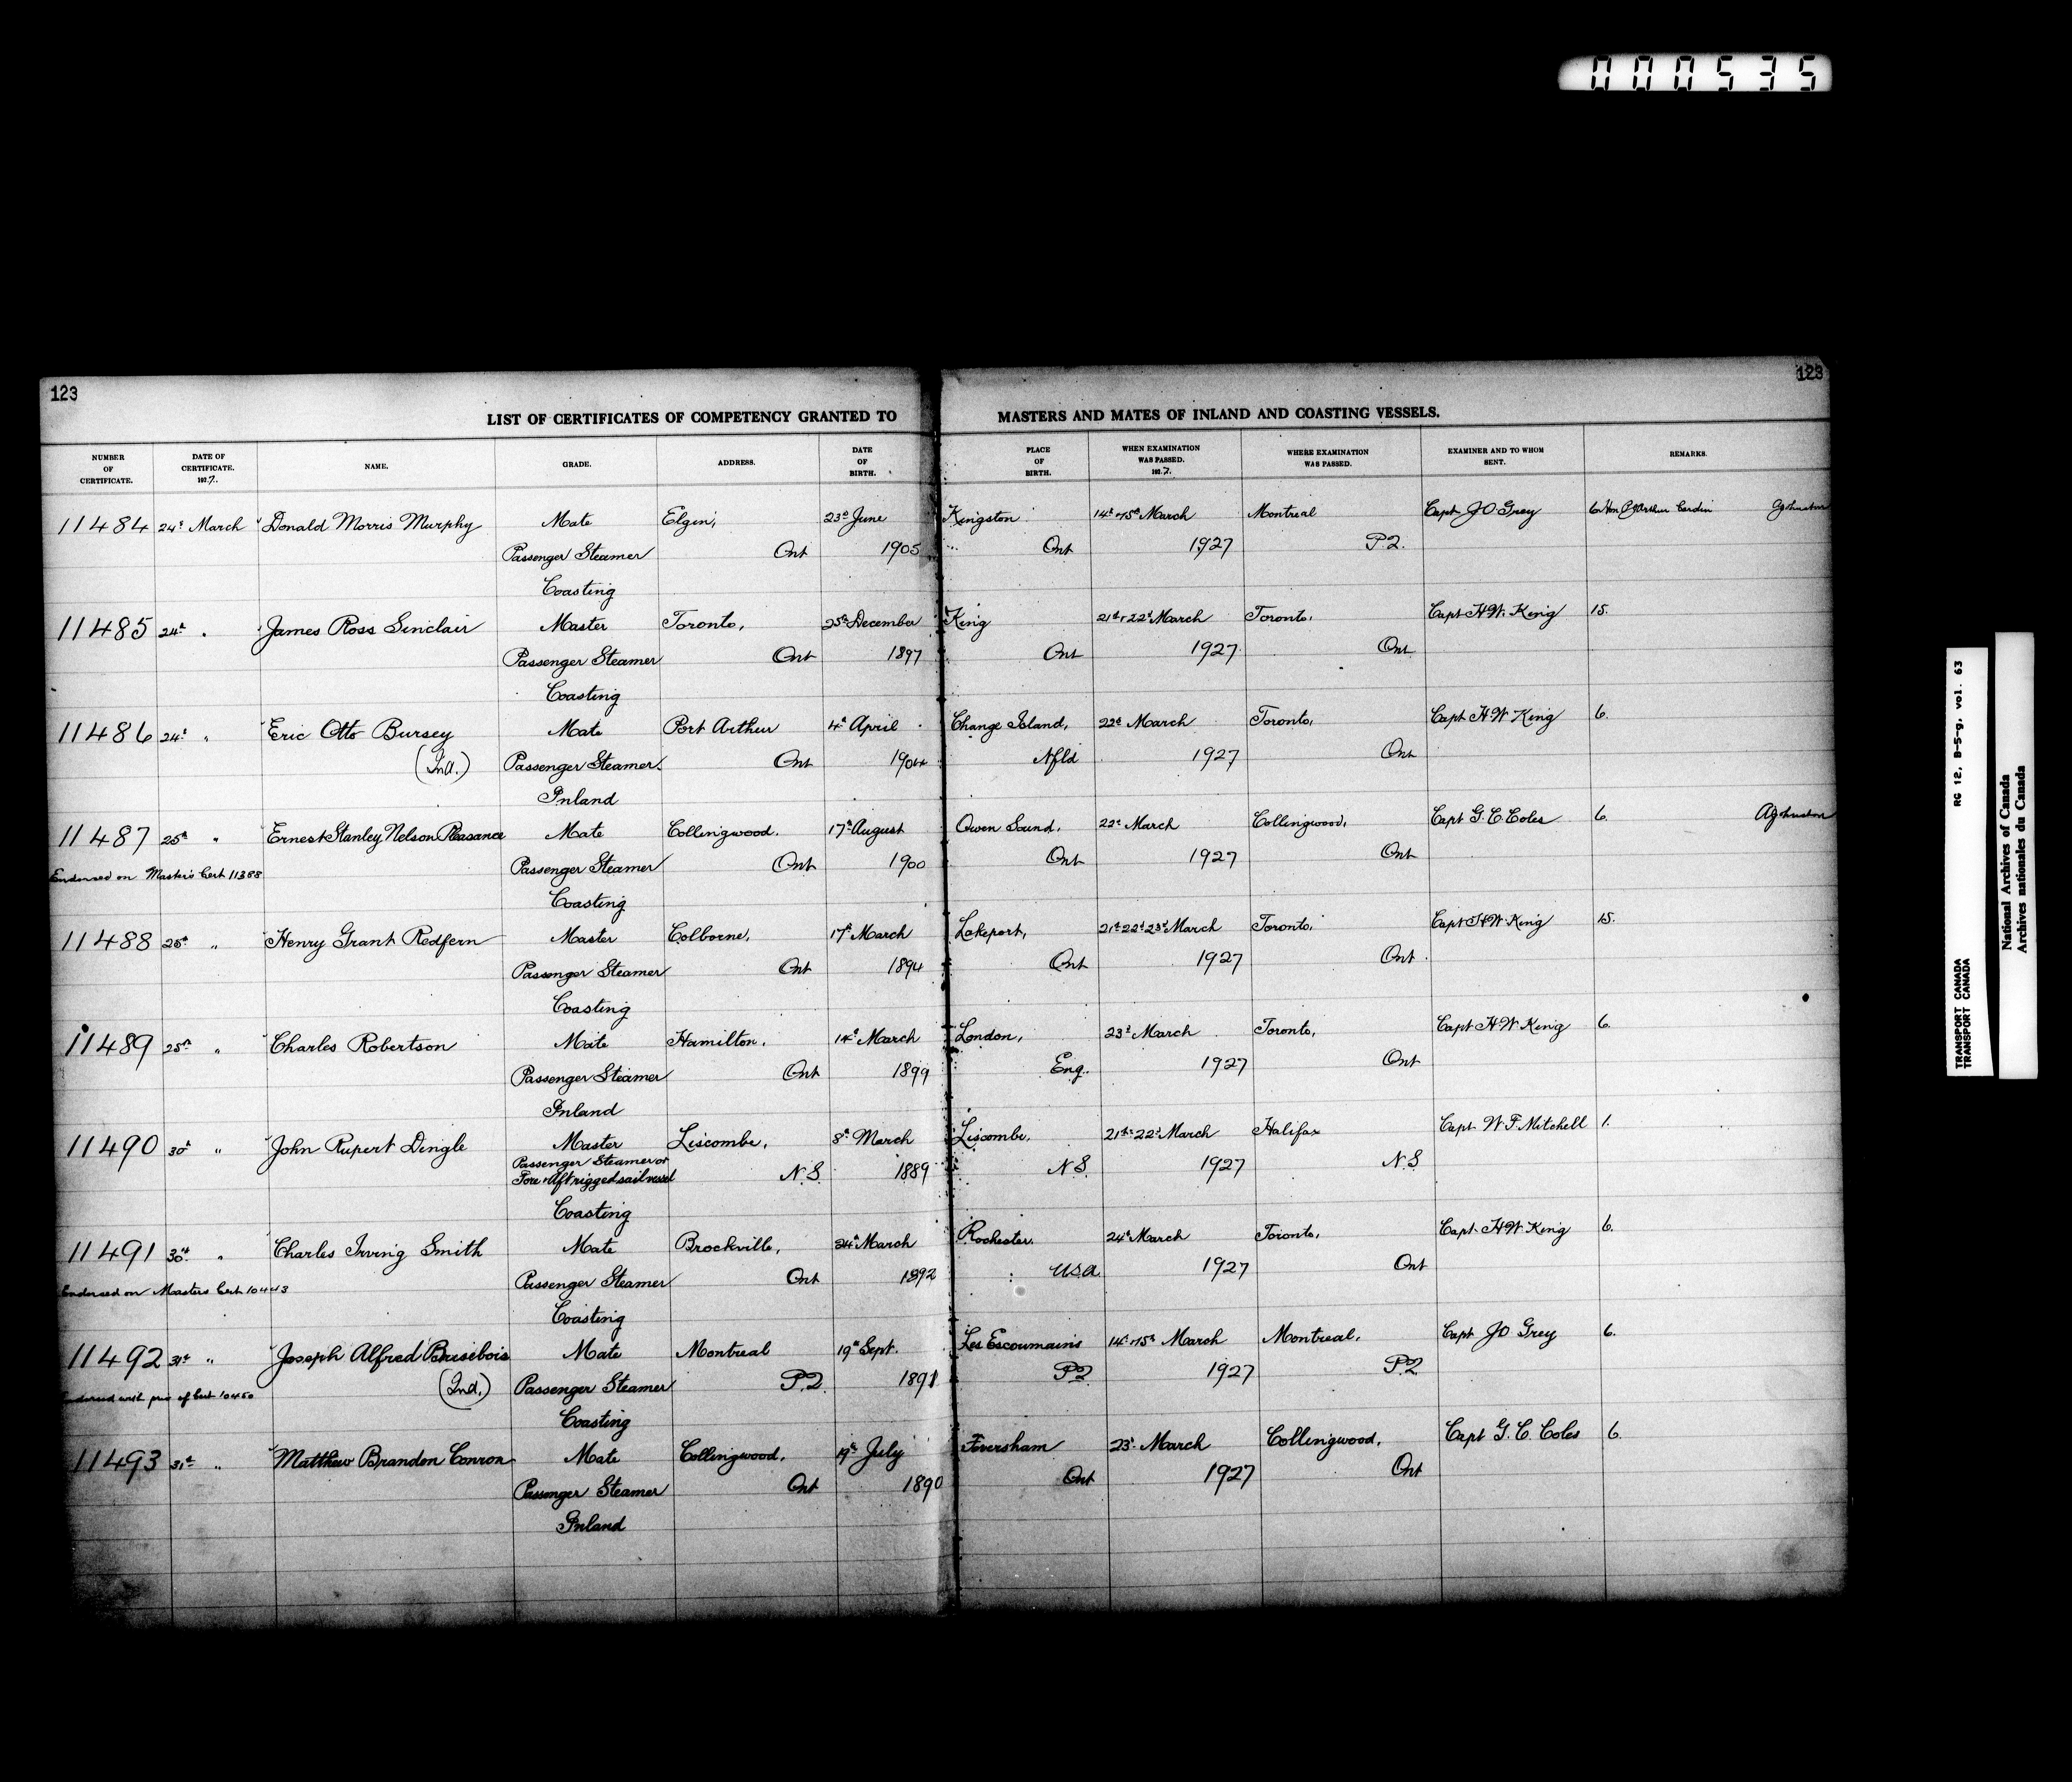 000535
123
123
LIST OF CERTIFICATES OF COMPETENCY GRANTED TO MASTERS AND MATES OF INLAND AND COASTING VESSELS.
NUMBER OF CERTIFICATE. DATE OF CERTIFICATE. 1927. NAME. GRADE. ADDRESS. DATE OF BIRTH. PLACE OF BIRTH. WHEN EXAMINATION WAS PASSED. 1927. WHERE EXAMINATION WAS PASSED. EXAMINER AND TO WHOM SENT. REMARKS.
11484 24th March Donald Morris Murphy Mate Elgin, 23rd June Kingston 14th & 15th March Montreal Capt J O Grey 6 Hon Arthur Cardin AJohnston
Passenger Steamer Ont 1905 Ont 1927 P.Q.
Coasting
11485 24th " James Ross Sinclair Master Toronto, 25th December King 21st & 22nd March Toronto, Capt H W King 15.
Passenger Steamer Ont 1897 Ont 1927 Ont
Coasting
11486 24th " Eric Otto Bursey Mate Port Arthur 4th April Change Island, 22nd March Toronto, Capt H W King 6.
(Ind.) Passenger Steamer Ont 1904 Nfld 1927 Ont
Inland
11487 25th " Ernest Stanley Nelson Pleasance Mate Collingwood. 17th August Owen Sound, 22nd March Collingwood, Capt G. C. Coles 6. AJohnston
Endorsed on Master's Cert 11388 Passenger Steamer Ont 1900 Ont 1927 Ont
Coasting
11488 25th " Henry Grant Redfern Master Colborne, 17th March Lakeport, 21st 22nd 23rd March Toronto, Capt H W King 15.
Passenger Steamer Ont 1894 Ont 1927 Ont
Coasting
11489 25th " Charles Robertson Mate Hamilton. 14th March London, 23rd March Toronto, Capt H W King 6.
Passenger Steamer Ont 1899 Eng. 1927 Ont
Inland
11490 30th " John Rupert Dingle Master Liscombe, 8th March Liscombe. 21st 22nd March Halifax Capt W F Mitchell 1.
Passenger Steamer or
Fore & Aft rigged sail vessel N.S. 1889 N.S. 1927 N.S.
Coasting
11491 30th " Charles Irving Smith Mate Brockville, 24th March Rochester. 24th March Toronto, Capt H W King 6.
Endorsed on Masters Cert 10443 Passenger Steamer Ont 1892 USA 1927 Ont
Coasting
11492 31st " Joseph Alfred Brisebois Mate Montreal 19th Sept. Les Escoumains 14th & 15th March Montreal, Capt J O Grey 6.
(Ind.) Passenger Steamer P.Q. 1891 P.Q. 1927 P.Q.
Coasting
11493 31st " Matthew Brandon Conron Mate Collingwood, 19th July Feversham 23rd March Collingwood, Capt G. C. Coles 6.
Passenger Steamer Ont 1890 Ont 1927 Ont
Inland
RG 12, B-5-g, vol. 63
TRANSPORT CANADA
TRANSPORT CANADA
National Archives of Canada
Archives nationales du Canada